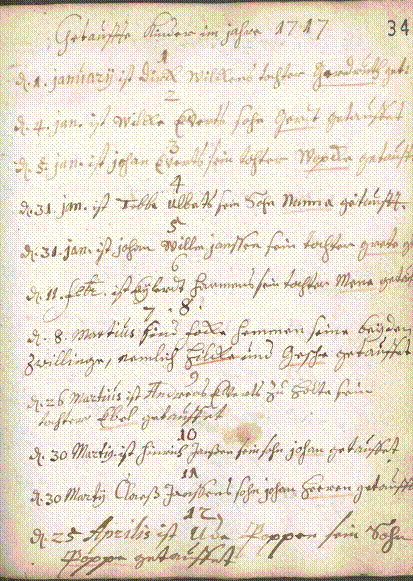 Getauffte Kinder im jahre 1747 34
1
d. 1. januarij ist Dirck Willkens tochter Gerdruth get
2
d. 4. jan. ist Wilcke Everts sohn Gerrit getauffet
3
d. 5. jan. ist johan Everts sein tochter getauff
4
d. 31. jan. ist Tebbe Ulberts sein Sohn Nanna getaufft.
5
d. 31. jan. ist johan Willm janssen sein tochter greta ge
6
d. 11. febr. ist Eylerdt Harmens sein tochter Mena getau
7. 8.
d. 8. Martius sind focke hommen seine beyden
Zwillinge, nemlich Hilcke und Gesche getauffet
9
d. 26 Martius ist Andrees Everts zu Holte sein
tochter Ebel getauffet
10
d. 30 Martij. ist hinrich Janssen sein sohn johan getauffet
11
d. 30 Martij Claeß Janssens sohn johan getauffe
12
d. 25 Aprilis ist Ude Poppen sein Sohn
Poppe getauffet